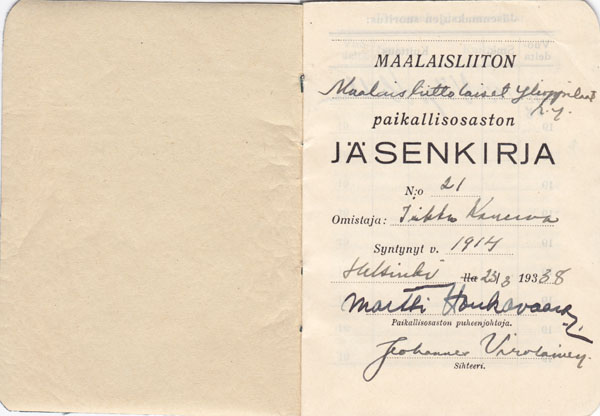 MAALAISLIITON
Maalaisliittolaiset Ylioppilaat
r.y.
paikallisosaston
JÄSENKIRJA
N:o 21
Omistaja: Kanerva
Syntynyt v. 1914
Helsinki lla 23/3 1938
Martti Honkavaara
Paikallisosaston puheenjohtaja.
Johannes Virolainen
Sihteeri.